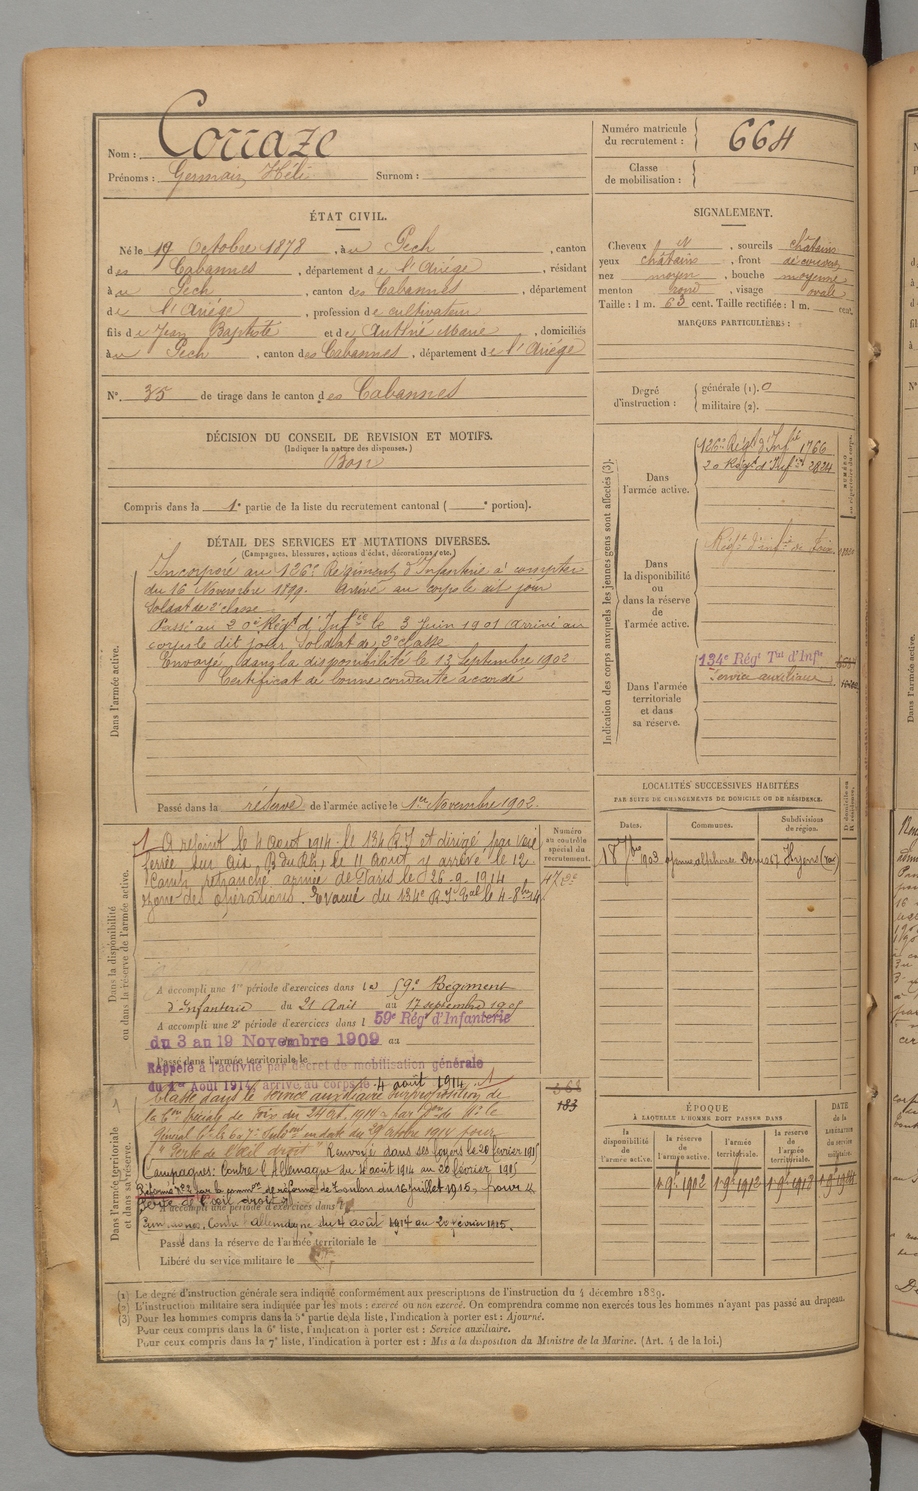 Nom : Corraze
Prénoms : Germain Héli Surnom :
Numéro matricule du recrutement : 664
Classe de mobilisation :
ÉTAT CIVIL.
Né le 19 Octobre 1878, à u Pech, canton
des Cabannes, département de l'Ariége, résidant
à u Pech, canton des Cabannes, département
de l'Ariége, profession de cultivateur
fils de Jean Baptiste et de Authié Marie, domiciliés
à u Pech, canton des Cabannes, département de l'Ariége
N° 35 de tirage dans le canton des Cabannes
SIGNALEMENT.
Cheveux N, sourcils châtains
yeux châtains, front découvert
nez moyen, bouche moyenne
menton rond, visage ovale
Taille : 1 m. 63 cent. Taille rectifiée : 1 m. cent.
MARQUES PARTICULIÈRES :
Degré d'instruction :
générale (1). 0
militaire (2).
DÉCISION DU CONSEIL DE REVISION ET MOTIFS.
(Indiquer la nature des dispenses.)
Bon
Compris dans la 1e partie de la liste du recrutement cantonal ( e portion).
DÉTAIL DES SERVICES ET MUTATIONS DIVERSES.
(Campagnes, blessures, actions d'éclat, décorations, etc.)
Dans l'armée active.
Incorporé au 126e Régiment d'Infanterie à compter
du 16 Novembre 1899. Arrivé au corps le dit jour
Soldat de 2e classe.
Passé au 20e Régt d'Infie le 3 Juin 1901 Arrivé au
corps le dit jour Soldat de 2e classe
Envoyé dans la disponibilité le 13 Septembre 1902
Certificat de bonne conduite accordé
Passé dans la réserve de l'armée active le 1er Novembre 1902.
Indication des corps auxquels les jeunes gens sont affectés (3).
Dans l'armée active.
126e Régt d'Infie 1766
20 Régt d'Infie 2824
Dans la disponibilité ou dans la réserve de l'armée active.
Régt d'infie de Foix
Dans l'armée territoriale et dans sa réserve.
134e Régt Tal d'Infie
Service auxiliaire
LOCALITÉS SUCCESSIVES HABITÉES
PAR SUITE DE CHANGEMENTS DE DOMICILE OU DE RÉSIDENCE.
Dates. Communes. Subdivisions de région.
Hyères (Var)
Dans la disponibilité ou dans la réserve de l'armée active.
Numéro au contrôle spécial du recrutement.
A rejoint le 4 Aout 1914 le 134 R.I et dirigé par voie
ferrée sur Aix, B du Rh, le 11 Aout, y arrivé le 12
Camp retranché armée de Paris le 26-9 1914
Zone des opérations. Evacué du 134e R.I. Tal le 4-8bre 14
A accompli une 1re période d'exercices dans le 59e Régiment
d'Infanterie du 21 Août au 17 septembre 1905
A accompli une 2e période d'exercices dans l 59e Rég d'Infanterie
du 3 au 19 Novembre 1909 au
Passé dans l'armée territoriale le
Rappelé à l'activité par décret de mobilisation générale
du 1er Août 1914, arrivé au corps le 4 août 1914
Dans l'armée territoriale et dans sa réserve.
Classé dans le service auxiliaire sur proposition de
la Con spéciale de Foix du 24 Oct. 1914 par Don de Mr le
Général Ct les 6e 7e Subons en date du 29 octobre 1914 pour
"Perte de l'œil droit" Renvoyé dans ses foyers le 20 février 1915
Campagnes: Contre l'Allemagne du 4 août 1914 au 20 février 1915
Réformé n° 2 par la common de réforme de Toulon du 16 juillet 1915, pour
perte de l'œil droit
A accompli une période d'exercices dans
Campagnes. Contre l'Allemagne du 4 août 1914 au 20 février 1915.
Passé dans la réserve de l'armée territoriale le
Libéré du service militaire le
183
ÉPOQUE
À LAQUELLE L'HOMME DOIT PASSER DANS
la disponibilité de l'armée active.
la réserve de l'armée active.
l'armée territoriale.
la réserve de l'armée territoriale.
DATE de la LIBÉRATION du service militaire.
(1) Le degré d'instruction générale sera indiqué conformément aux prescriptions de l'instruction du 4 décembre 1889.
(2) L'instruction militaire sera indiquée par les mots : exercé ou non exercé. On comprendra comme non exercés tous les hommes n'ayant pas passé au drapeau.
(3) Pour les hommes compris dans la 5e partie de la liste, l'indication à porter est : Ajourné.
Pour ceux compris dans la 6e liste, l'indication à porter est : Service auxiliaire.
Pour ceux compris dans la 7e liste, l'indication à porter est : Mis à la disposition du Ministre de la Marine. (Art. 4 de la loi.)